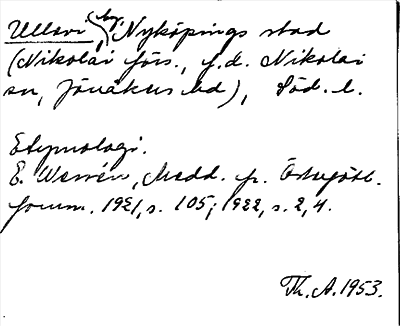 Ullevi, by, Nyköpings stad
(Nikolai förs., f.d. Nikolai
sn, Jönåkers hd), Söd. l.
Etymologi.
E. Wessén, Medd. fr. Östergötl.
fornm. 1921, s. 105; 1922, s. 2, 4.
Th. A. 1953.